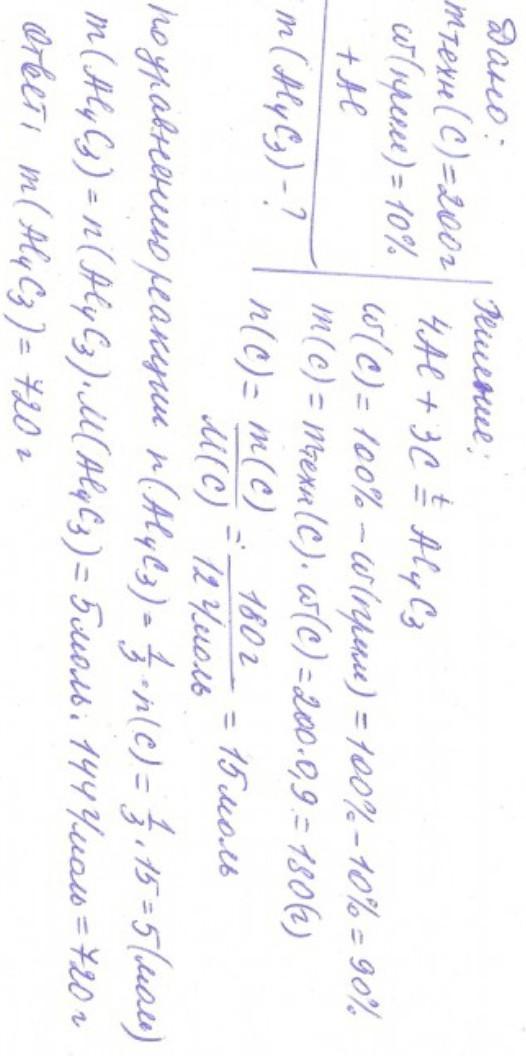 Дано:
mтехн(C)=200г
ω(прим)=10%
+Al
m(Al4C3)-?
Решение:
4Al + 3C =t Al4C3
ω(C)=100%-ω(прим)=100%-10%=90%
m(C)=mтехн(C)·ω(C)=200·0,9=180(г)
n(C)=m(C)/M(C)=180г/12г/моль=15моль
по уравнению реакции n(Al4C3)=1/3·n(C)=1/3·15=5(моль)
m(Al4C3)=n(Al4C3)·M(Al4C3)=5моль·144г/моль=720г
Ответ: m(Al4C3)=720г